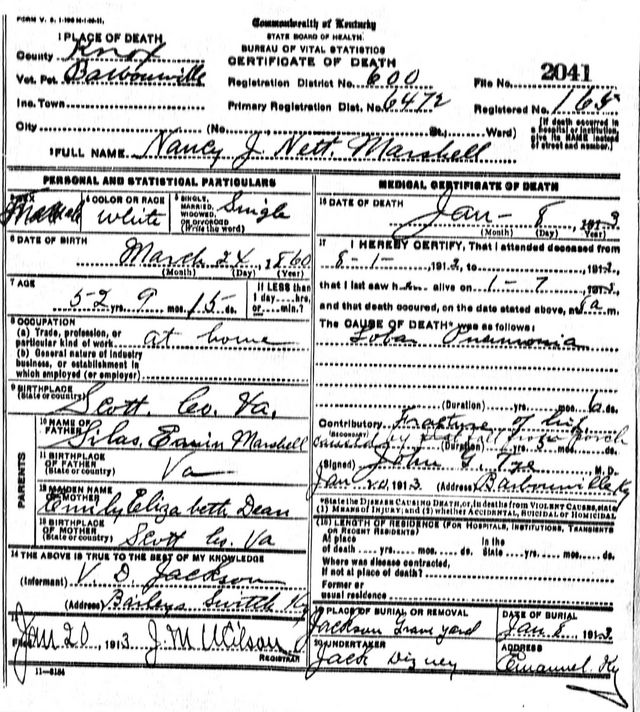 FORM V. S. 1-
Commonwealth of Kentucky
STATE BOARD OF HEALTH.
BUREAU OF VITAL STATISTICS
CERTIFICATE OF DEATH
1 PLACE OF DEATH,
County Knox
Vot. Pct. Barbourville
Inc. Town
City (No. St., Ward)
Registration District No. 600
Primary Registration Dist. No. 6472
File No. 2041
Registered No. 165
[If death occurred in a hospital or institution, give its NAME instead of street and number.]
2 FULL NAME Nancy J Nett. Marshell
PERSONAL AND STATISTICAL PARTICULARS
SEX
4 COLOR OR RACE White
5 SINGLE, MARRIED, WIDOWED, OR DIVORCED (Write the word) Single
6 DATE OF BIRTH
March 24 1860
(Month) (Day) (Year)
7 AGE
52 yrs. 9 mos. 15 ds.
If LESS than 1 day....hrs. or....min.?
8 OCCUPATION
(a) Trade, profession, or particular kind of work at home
(b) General nature of industry business, or establishment in which employed (or employer)
9 BIRTHPLACE
(State or country) Scott Co. Va.
PARENTS
10 NAME OF FATHER Silas Ervin Marshell
11 BIRTHPLACE OF FATHER (State or country) Va
12 MAIDEN NAME OF MOTHER Emily Elizabeth Dean
13 BIRTHPLACE OF MOTHER (State or country) Scott Co. Va
14 THE ABOVE IS TRUE TO THE BEST OF MY KNOWLEDGE
(Informant) V. D. Jackson
(Address) Baileys Switch Ky
15
Filed Jan 20, 1913 J. M. Wilson
REGISTRAR
11-6184
MEDICAL CERTIFICATE OF DEATH
16 DATE OF DEATH
Jan - 8, 1913
(Month) (Day) (Year)
17 I HEREBY CERTIFY, That I attended deceased from
8-1- 1912, to 191
that I last saw h alive on 1-7, 191
and that death occured, on the date stated above, at 8 a m.
The CAUSE OF DEATH* was as follows:
Lobar Pneumonia
(Duration) yrs. mos. 6 ds.
Contributory Fracture of hip
(SECONDARY) caused by fall from porch
(Duration) yrs. mos. ds.
(Signed) John G. Tye M. D.
Jan 1913 (Address) Barbourville Ky
*State the DISEASE CAUSING DEATH, or, in deaths from VIOLENT CAUSES, state (1) MEANS OF INJURY; and (2) whether ACCIDENTAL, SUICIDAL OF HOMICIDAL
(18) LENGTH OF RESIDENCE (FOR HOSPITALS, INSTITUTIONS, TRANSIENTS OR RECENT RESIDENTS)
At place of death yrs. mos. ds. In the State yrs. mos. ds.
Where was disease contracted, if not at place of death?
Former or usual residence
19 PLACE OF BURIAL OR REMOVAL Jackson Grave yard
DATE OF BURIAL Jan 8, 1913
20 UNDERTAKER Jack Dizney
ADDRESS Emanuel. Ky